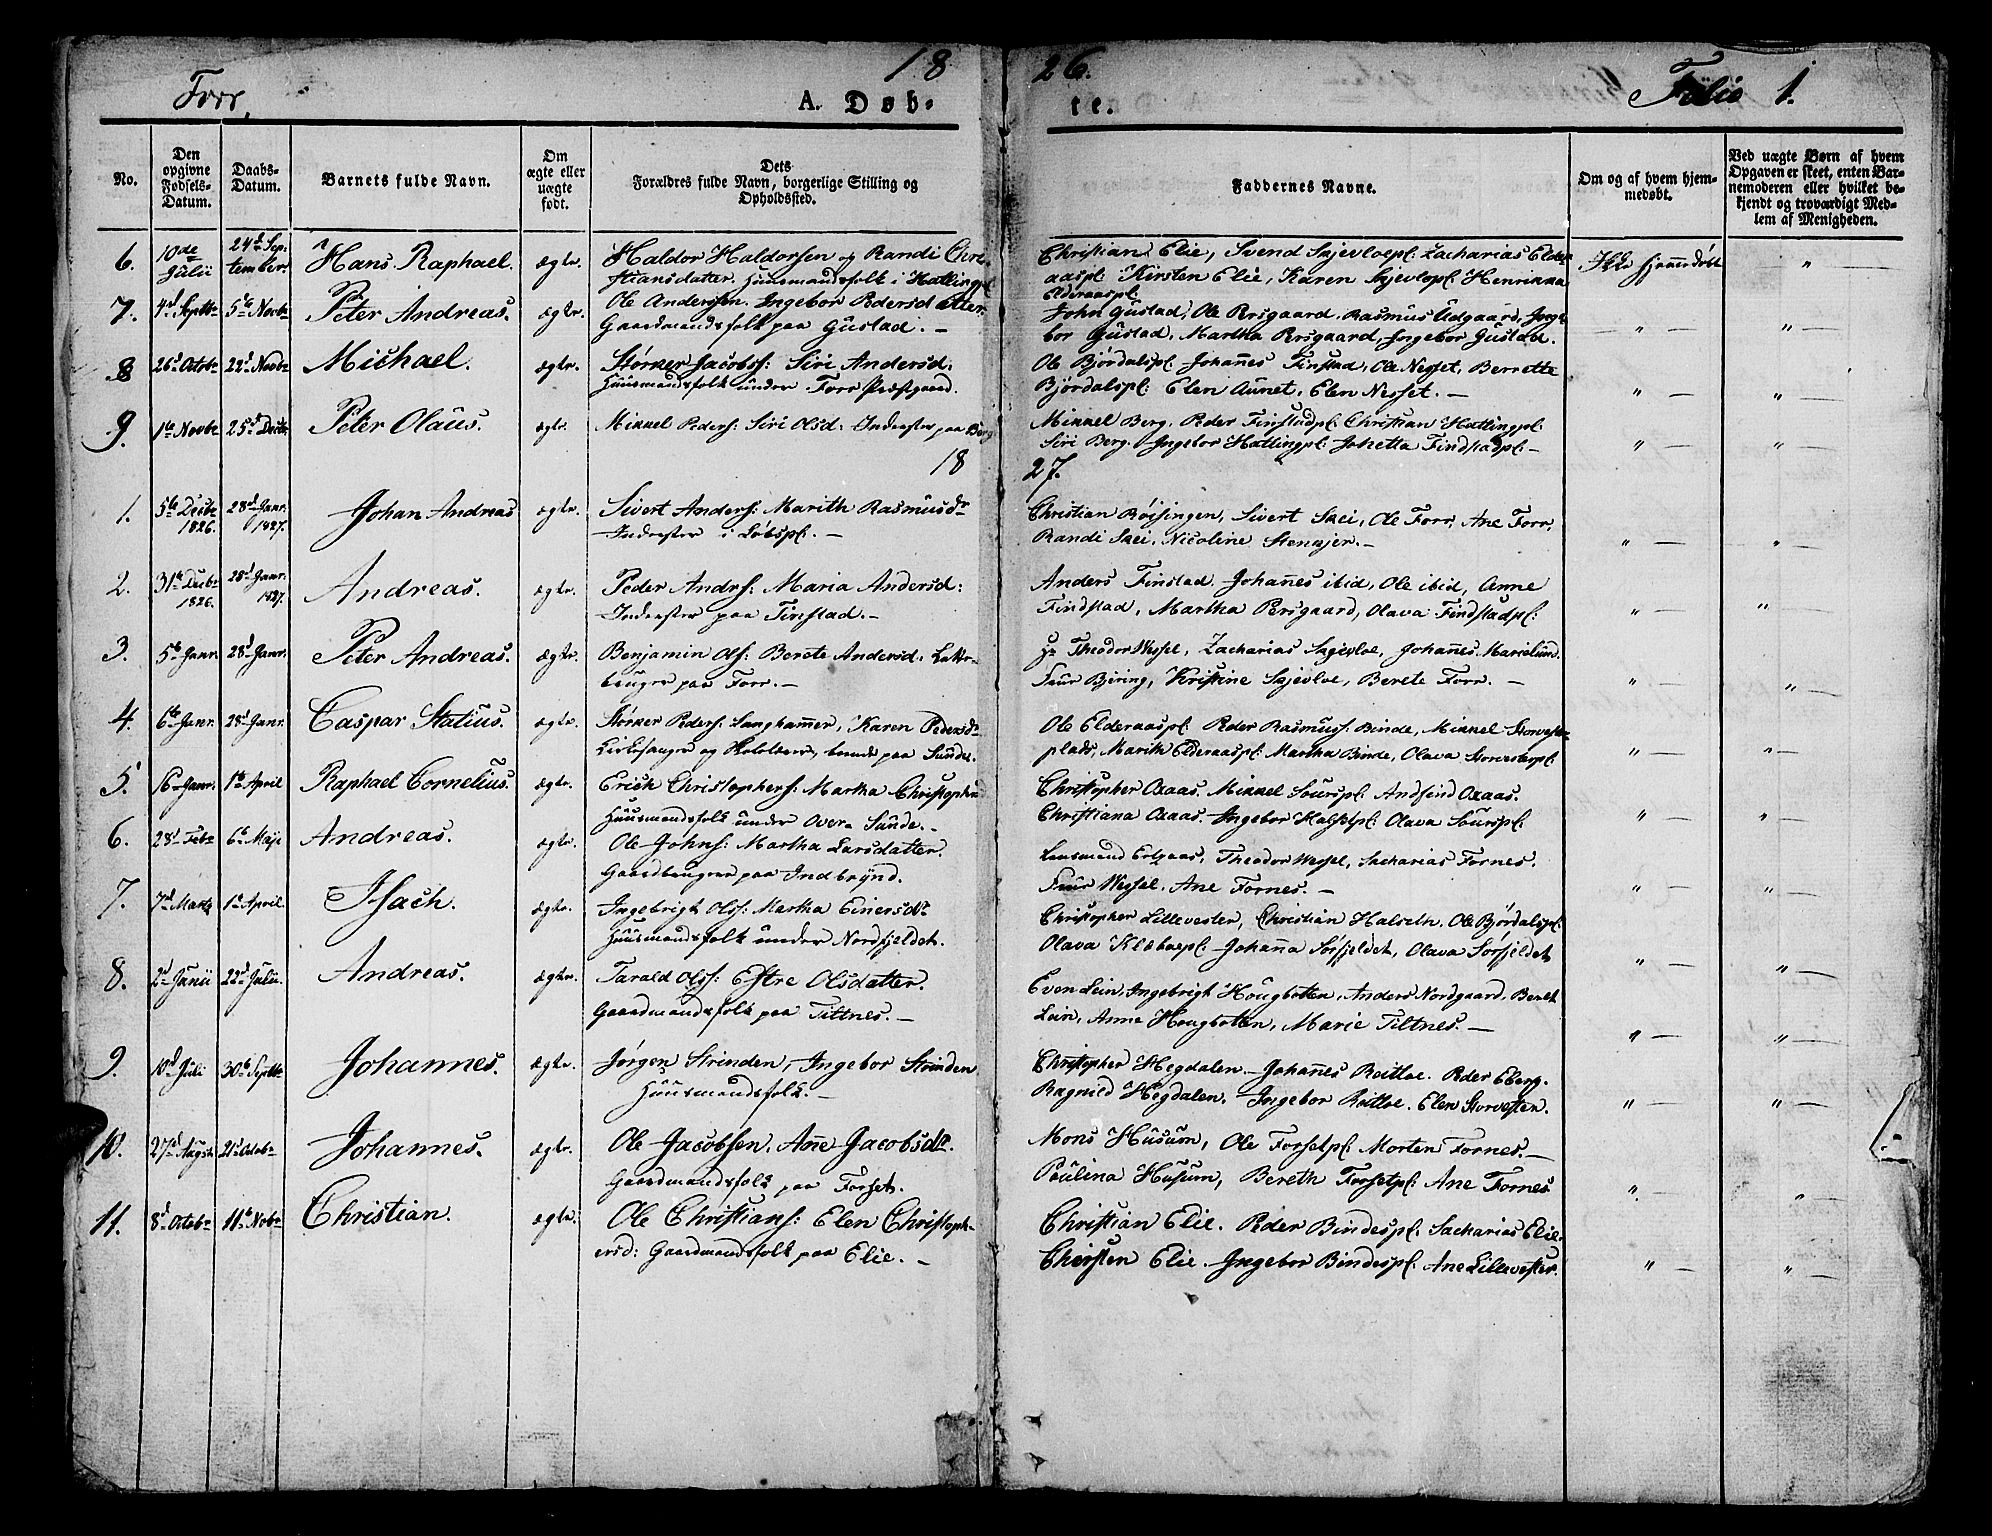 18 26.
Forr, A. Døb- te. Folio 1.
No. Den opgivne Fødsels-Datum. Daabs-Datum. Barnets fulde Navn. Om ægte eller uægte født. Dets Forældres fulde Navn, borgerlige Stilling og Opholdssted. Faddernes Navne. Om og af hvem hjemmedøbt. Ved uægte Børn af hvem Opgaven er skeet, enten Barnemoderen eller hvilket bekjendt og troværdigt Medlem af Menigheden.
6. 10de Julii 24d September Hans Raphael. ægte. Haldor Haldorsen og Randi Chri-
stiansdatter. Huusmandsfolk i Hallingpl.
Christian Elie, Svend Skjevloepl. Zacharias Elder-
aaspl. Kirsten Elie, Karen Skjevlopl. Henrikka
Elderaaspl. Ikke hjemmedøbt " —
7. 4d Septbr 5te Novbr Peter Andreas. ægte. Ole Anderssen. Ingebor Pedersdatter
Gaardmandsfolk paa Gustad. —
John Gustad, Ole Persgaard, Rasmus Udgaard, Inge-
bor Gustad, Martha Persgaard, Ingebor Gustad. — " — " —
8 26d Octbr 22d Novbr Michael. ægte. Størker Jacobss: Siri Andersd.
Huusmandsfolk under Forr Præstgaard.
Ole Bjørdalspl. Johannes Finstad, Ole Nesset, Berrette
Bjørdalspl. Elen Aunet, Elen Nesset. — " — " —
9. 1te Novbr 25d Decbr Peter Olaus. ægte. Mikkel Peders: Siri Olsd: Inderster paa Berg
Mikkel Berg. Peder Finstadpl. Christian Hallingpl.
Siri Berg. Ingebor Hallingpl. Johetta Findstadpl. — " — " —
18 27.
1. 5te Decbr 1826. 28d Janr. 1827. Johan Andreas ægte. Sivert Anders: Marith Rasmusdr
Inderster i Løbspl. —
Christian Röisingen, Sivert Skei, Ole Forr, Ane Forr,
Randi Skei, Nicoline Stenkjer. — " — " —
2. 31te Decbr 1826. 28d Janr. 1827. Andreas. ægte. Peder Andrs: Maria Andersd:
Inderster paa Finstad. —
Anders Finstad, Johannes ibid, Ole ibid, Anne
Findstad, Martha Persgaard, Olava Findstadpl: " — " —
3. 5te Janr. 28d Janr. Peter Andreas. ægte. Benjamin Ols: Berete Andersd:
bruger paa Forr. —
Hr Theodor Wessel, Zacharias Skjevloe, Johannes Marielund.
Frue Bjering, Kristine Skjevloe, Berete Forr. — " — " —
4. 6te Janr. 28d Janr. Caspar Statius. ægte. Størker Peders: Langhammer, Karen Pedersdr
Kirkesanger og Skolelærer, boende paa Sunde.
Ole Elderaaspl. Peder Rasmuss: Binde, Mikkel Storvester-
plads, Marith Elderaaspl. Martha Binde, Olava Storvesterpl. " — " —
5. 16 Janr. 1te April Raphael Cornelius. ægte. Erich Christophers: Martha Christophsd
Huusmandsfolk under Over-Sunde. —
Christopher Oxaas. Mikkel Sourspl. Andfind Oxaas.
Christiana Oxaas. Ingebor Olava Sourspl. " — " —
6. 28d Febr 6te Maji Andreas. ægte. Ole Johns: Martha Larsdatter.
Gaardbruger paa Indbrynd.
Lensmand Theodor Wessel, Sacharias Fornes.
Frue Wessel, Ane Fornes. — " — " —
7. 7d Marts 1te April. Isach. ægte. Ingebrigt Olss: Martha Einersdr
Huusmandsfolk under Nordfjeldet.
Christopher Lillevester, Christian Halseth, Ole Bjørdalspl.
Olava Klæboepl. Johanna Sørfjeldet, Olava Sørfjeldet " — " —
8. 2d Junii 22d Julii. Andreas. ægte. Tarald Olss: Estre Olsdatter.
Gaardmandsfolk paa Tiltnes. —
Even Lein, Ingebrigt Hougbotten, Anders Nordgaard, Beret
Lein, Anne Hougbotten, Marie Tiltnes. — " — " —
9. 10d Juli 30te Septbr Johannes. ægte. Jørgen Strinden, Ingebor Strinden
Huusmandsfolk. —
Christopher Hegdalen. Johannes Roitloe. Peder Eberg.
Ragnild Hegdalen. Ingebor Roitloe. Elen Storvesten. " — " —
10. 27d August 21d Octobr Johannes. ægte. Ole Jacobsen. Ane Jacobsdr.
Gaardmandsfolk paa Forset.
Mons Husum, Ole Forsetpl. Morten Fornes. —
Paulina Husum, Bereth Forsetpl. Ane Fornes " — " —
11. 8d Octobr 11te Nobr Christian. ægte. Ole Christians: Elen Christoph-
ersd: Gaardmandsfolk paa Elie. —
Christian Elie. Peder Bindespl. Sacharias Elie.
Chersten Elie. Ingebor Bindespl. Ane Lillevester. " — " —